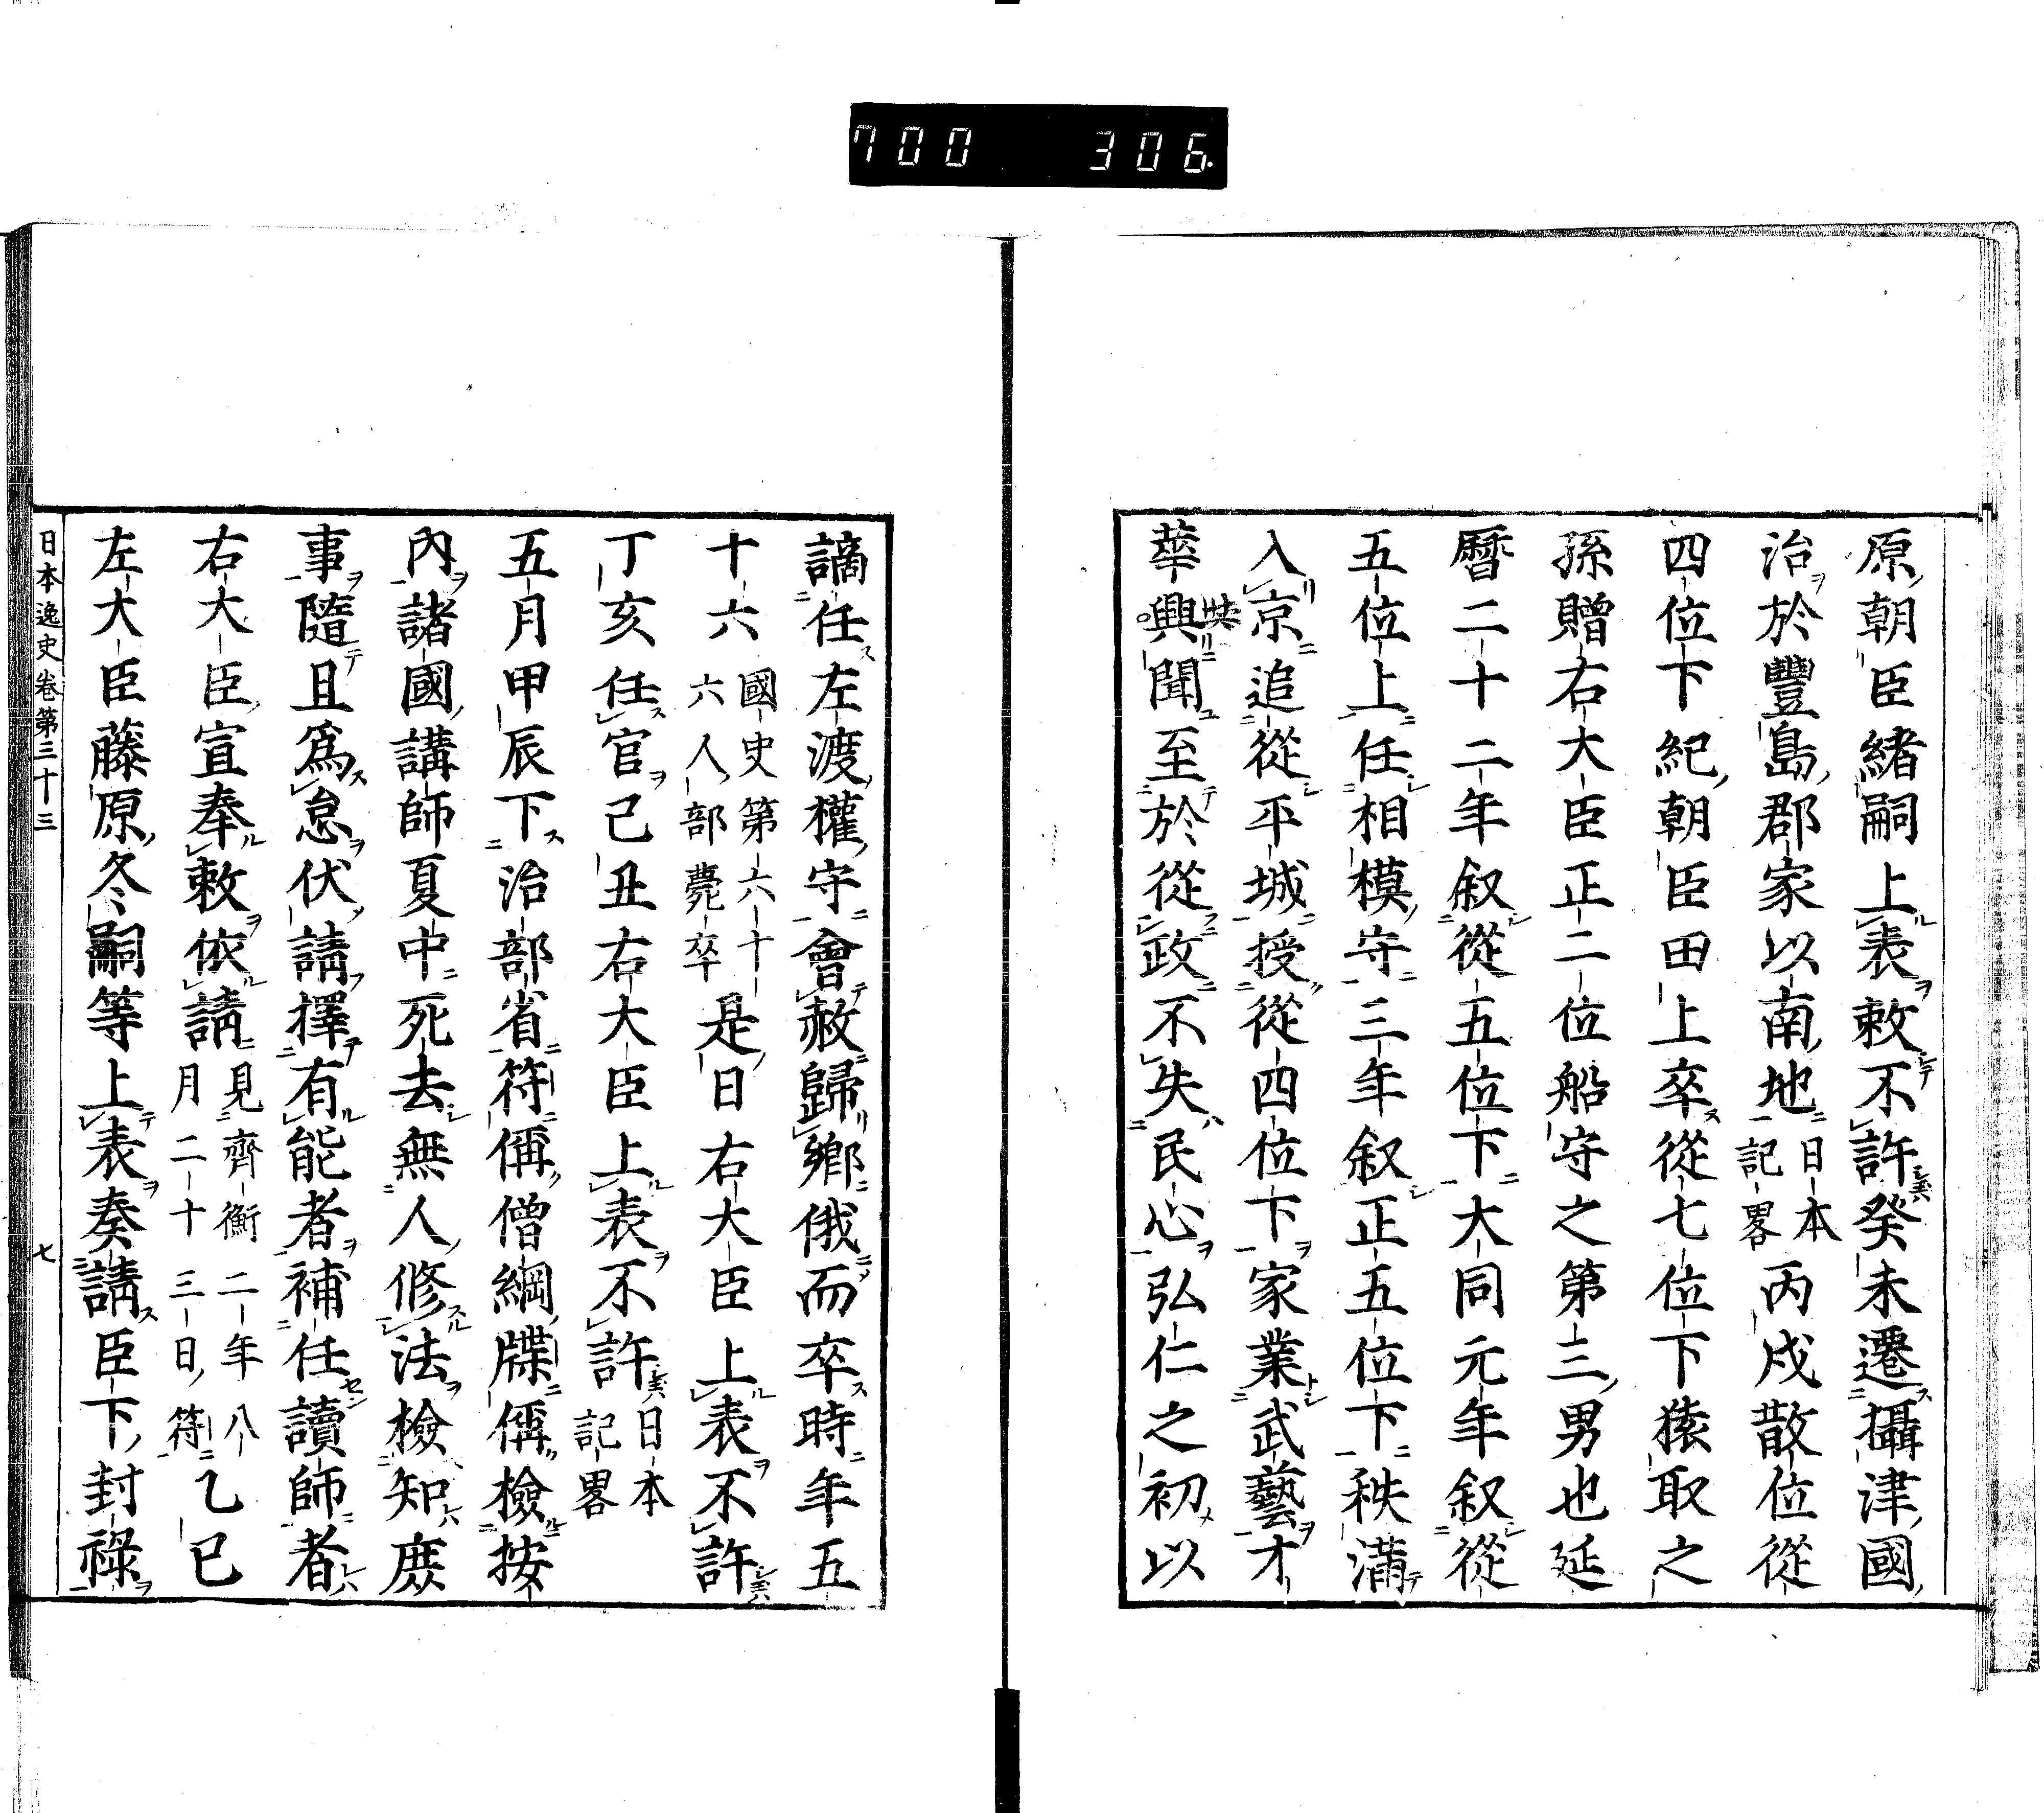 700 306
原朝臣緒嗣上表敕不許癸未遷攝津國
治於豐島郡家以南地日本記畧丙戌散位從
四位下紀朝臣田上卒從七位下猿取之
孫贈右大臣正二位船守之第三男也延
曆二十二年叙從五位下大同元年叙從
五位上任相模守三年叙正五位下秩滿
入京追從平城授從四位下家業武藝才
華興聞至於從政不失民心弘仁之初以
謫任左渡權守會赦歸鄉俄而卒時年五
十六國史第六十六人部薨卒是日右大臣上表不許
丁亥任官己丑右大臣上表不許日本記畧
五月甲辰下治部省符偁僧綱牒偁檢按
內諸國講師夏中死去無人修法檢知庶
事隨且爲怠伏請擇有能者補任讀師者
右大臣宣奉敕依請見齊衡二年八月二十三日符乙巳
左大臣藤原冬嗣等上表奏請臣下封祿
日本逸史卷第三十三 七